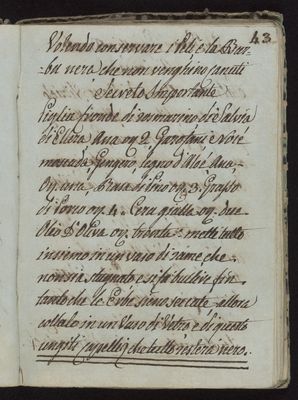 43
Volendo conservare i Peli e la Bar¬
ba nera che non venghino canuti
Secreto Importante
Piglia fronde di rosmarino di Salvia
di Ellera Ana on. 2. Garofani e Nose
moscada, Gengevo, Legno d'Aloè Ana,
On. una, di Pino on. 3. Grasso
di Porco on. 4. Cera gialla on. due
Olio D'Oliva on. trenta: mette tutto
insieme in un vaso di rame che
non sia stagnato e si fà bullire fin
tanto che le Erbe sieno seccate allora
collalo in un Vaso di Vetro e di questo
ungiti i capelli, che tutto restera nero.